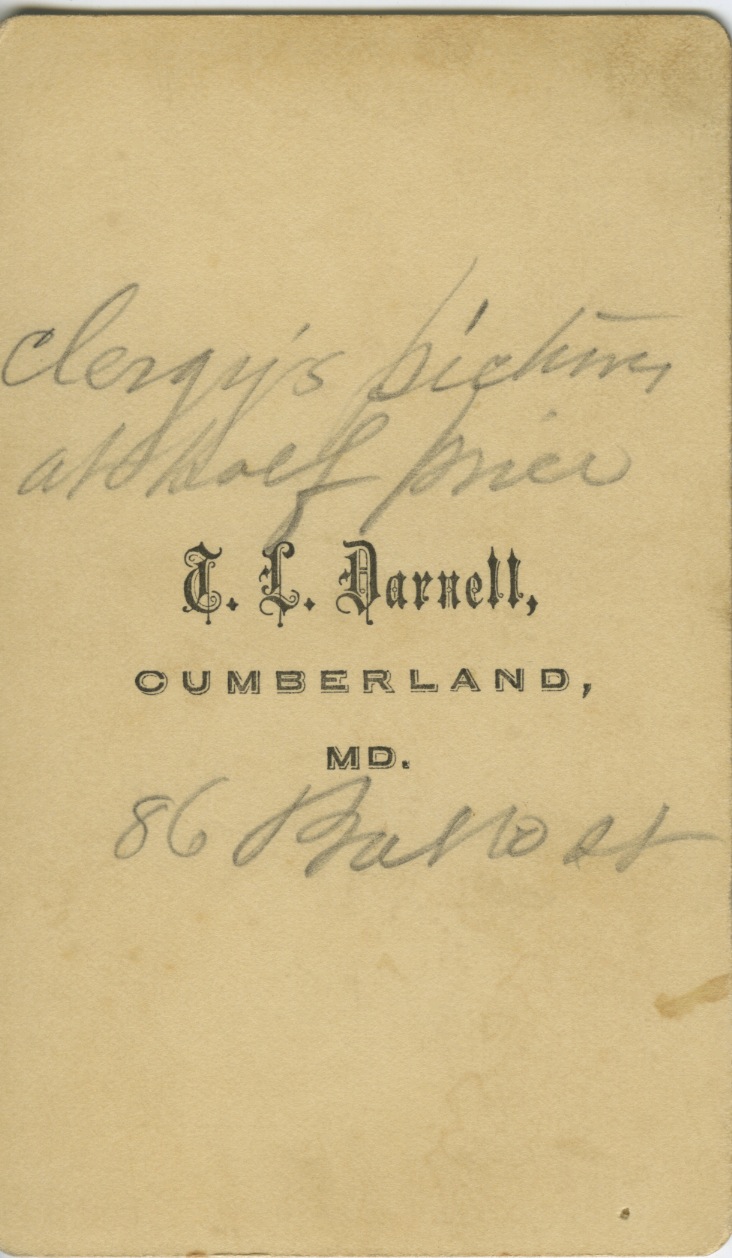 Clergy's pictures
at half price
T. L. Darnell,
CUMBERLAND,
MD.
86 Balto st